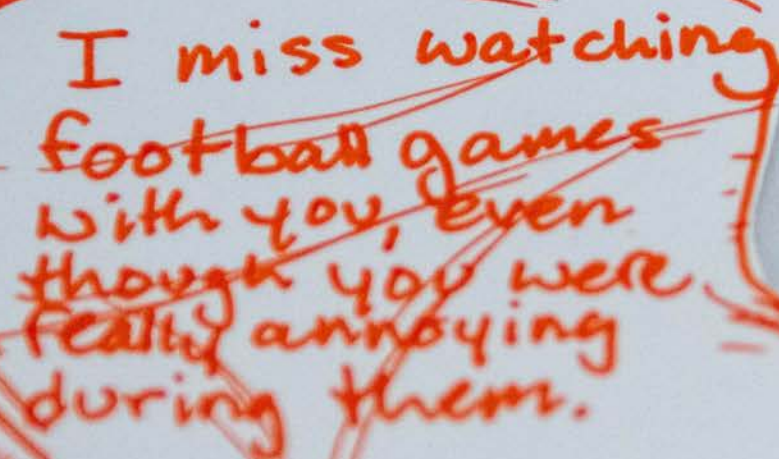 I miss watching
football games
with you, even
though you were
really annoying
during them.